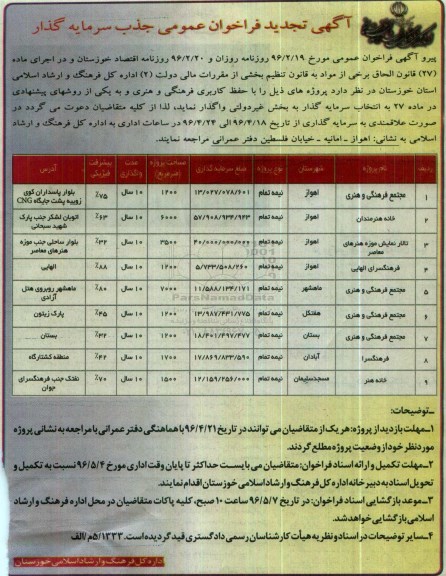 آگهی تجدید فراخوان عمومی جذب سرمایه گذار
پیرو آگهی فراخوان عمومی مورخ ۹۶/۲/۱۹ روزنامه روزان و ۹۶/۲/۲۰ روزنامه اقتصاد خوزستان و در اجرای ماده
(۲۷) قانون الحاق برخی از مواد به قانون تنظیم بخشی از مقررات مالی دولت (۲) اداره کل فرهنگ و ارشاد اسلامی
استان خوزستان در نظر دارد پروژه های ذیل را با حفظ کاربری فرهنگی و هنری و به یکی از روشهای پیشنهادی
در ماده ۲۷ به انتخاب سرمایه گذار به بخش غیردولتی واگذار نماید، لذا از کلیه متقاضیان دعوت می گردد در
صورت علاقمندی به سرمایه گذاری از تاریخ ۹۶/۴/۱۸ الی ۹۶/۴/۲۴ در ساعات اداری به اداره کل فرهنگ و ارشاد
اسلامی به نشانی: اهواز - امانیه - خیابان فلسطین دفتر عمرانی مراجعه نمایند.
ردیف نام پروژه شهرستان نوع پروژه مبلغ سرمایه گذاری مساحت پروژه (مترمربع) مدت واگذاری پیشرفت فیزیکی آدرس
۱ مجتمع فرهنگی و هنری اهواز نیمه تمام ۱۳/۰۲۷/۰۷۸/۶۰۱ ۱۲۰۰ ۱۰ سال ٪۷۵ بلوار پاسداران کوی زوییه پشت جایگاه CNG
۲ خانه هنرمندان اهواز نیمه تمام ۵۷/۹۰۸/۹۳۴/۹۲۳ ۶۰۰۰ ۱۰ سال ٪۶۳ اتوبان لشکر جنب پارک شهید سبحانی
۳ تالار نمایش موزه هنرهای معاصر اهواز نیمه تمام ۴۰/۰۰۰/۰۰۰/۰۰۰ ۳۵۰۰ ۱۰ سال ٪۳۲ بلوار ساحلی جنب موزه هنرهای معاصر
۴ فرهنگسرای الهایی اهواز نیمه تمام ۵/۷۳۳/۵۰۸/۲۶۰ ۱۲۰۰ ۱۰ سال ٪۸۸ الهایی
۵ مجتمع فرهنگی و هنری ماهشهر نیمه تمام ۱۱/۵۸۸/۱۳۴/۱۷۱ ۷۰۰۰ ۱۰ سال ٪۸۰ ماهشهر روبروی هتل آزادی
۶ مجتمع فرهنگی و هنری هفتکل نیمه تمام ۱۳/۹۸۷/۴۳۱/۷۷۵ ۱۲۰۰ ۱۰ سال ٪۴۵ پارک زیتون
۷ مجتمع فرهنگی و هنری بستان نیمه تمام ۱۸/۴۰۱/۴۹۷/۴۷۷ ۱۲۰۰ ۱۰ سال ٪۳۲ بستان
۸ فرهنگسرا آبادان نیمه تمام ۱۷/۸۶۹/۸۳۳/۵۹۰ ۱۷۰۰ ۱۰ سال ٪۴۲ منطقه کشتارگاه
۹ خانه هنر مسجدسلیمان نیمه تمام ۱۲/۱۵۹/۲۵۶/۰۰۰ ۱۵۰۰ ۱۰ سال ٪۷۰ نفتک جنب فرهنگسرای جوان
ParsNamadData
-توضیحات:
۱-مهلت بازدید از پروژه: هر یک از متقاضیان می توانند در تاریخ ۹۶/۴/۲۱ با هماهنگی دفتر عمرانی با مراجعه به نشانی پروژه
مورد نظر خود از وضعیت پروژه مطلع گردند.
۲-مهلت تکمیل و ارائه اسناد فراخوان: متقاضیان می بایست حداکثر تا پایان وقت اداری مورخ ۹۶/۵/۴ نسبت به تکمیل و
تحویل اسناد به دبیرخانه اداره کل فرهنگ و ارشاد اسلامی خوزستان اقدام نمایند.
۳-موعد بازگشایی اسناد فراخوان: در تاریخ ۹۶/۵/۷ ساعت ۱۰ صبح، کلیه پاکات متقاضیان در محل اداره فرهنگ و ارشاد
اسلامی بازگشایی خواهد شد.
۴-سایر توضیحات در اسناد و نظر به هیأت کارشناسان رسمی دادگستری قید گردیده است. ۵/۱۳۳۳/م/الف
اداره کل فرهنگ و ارشاد اسلامی خوزستان